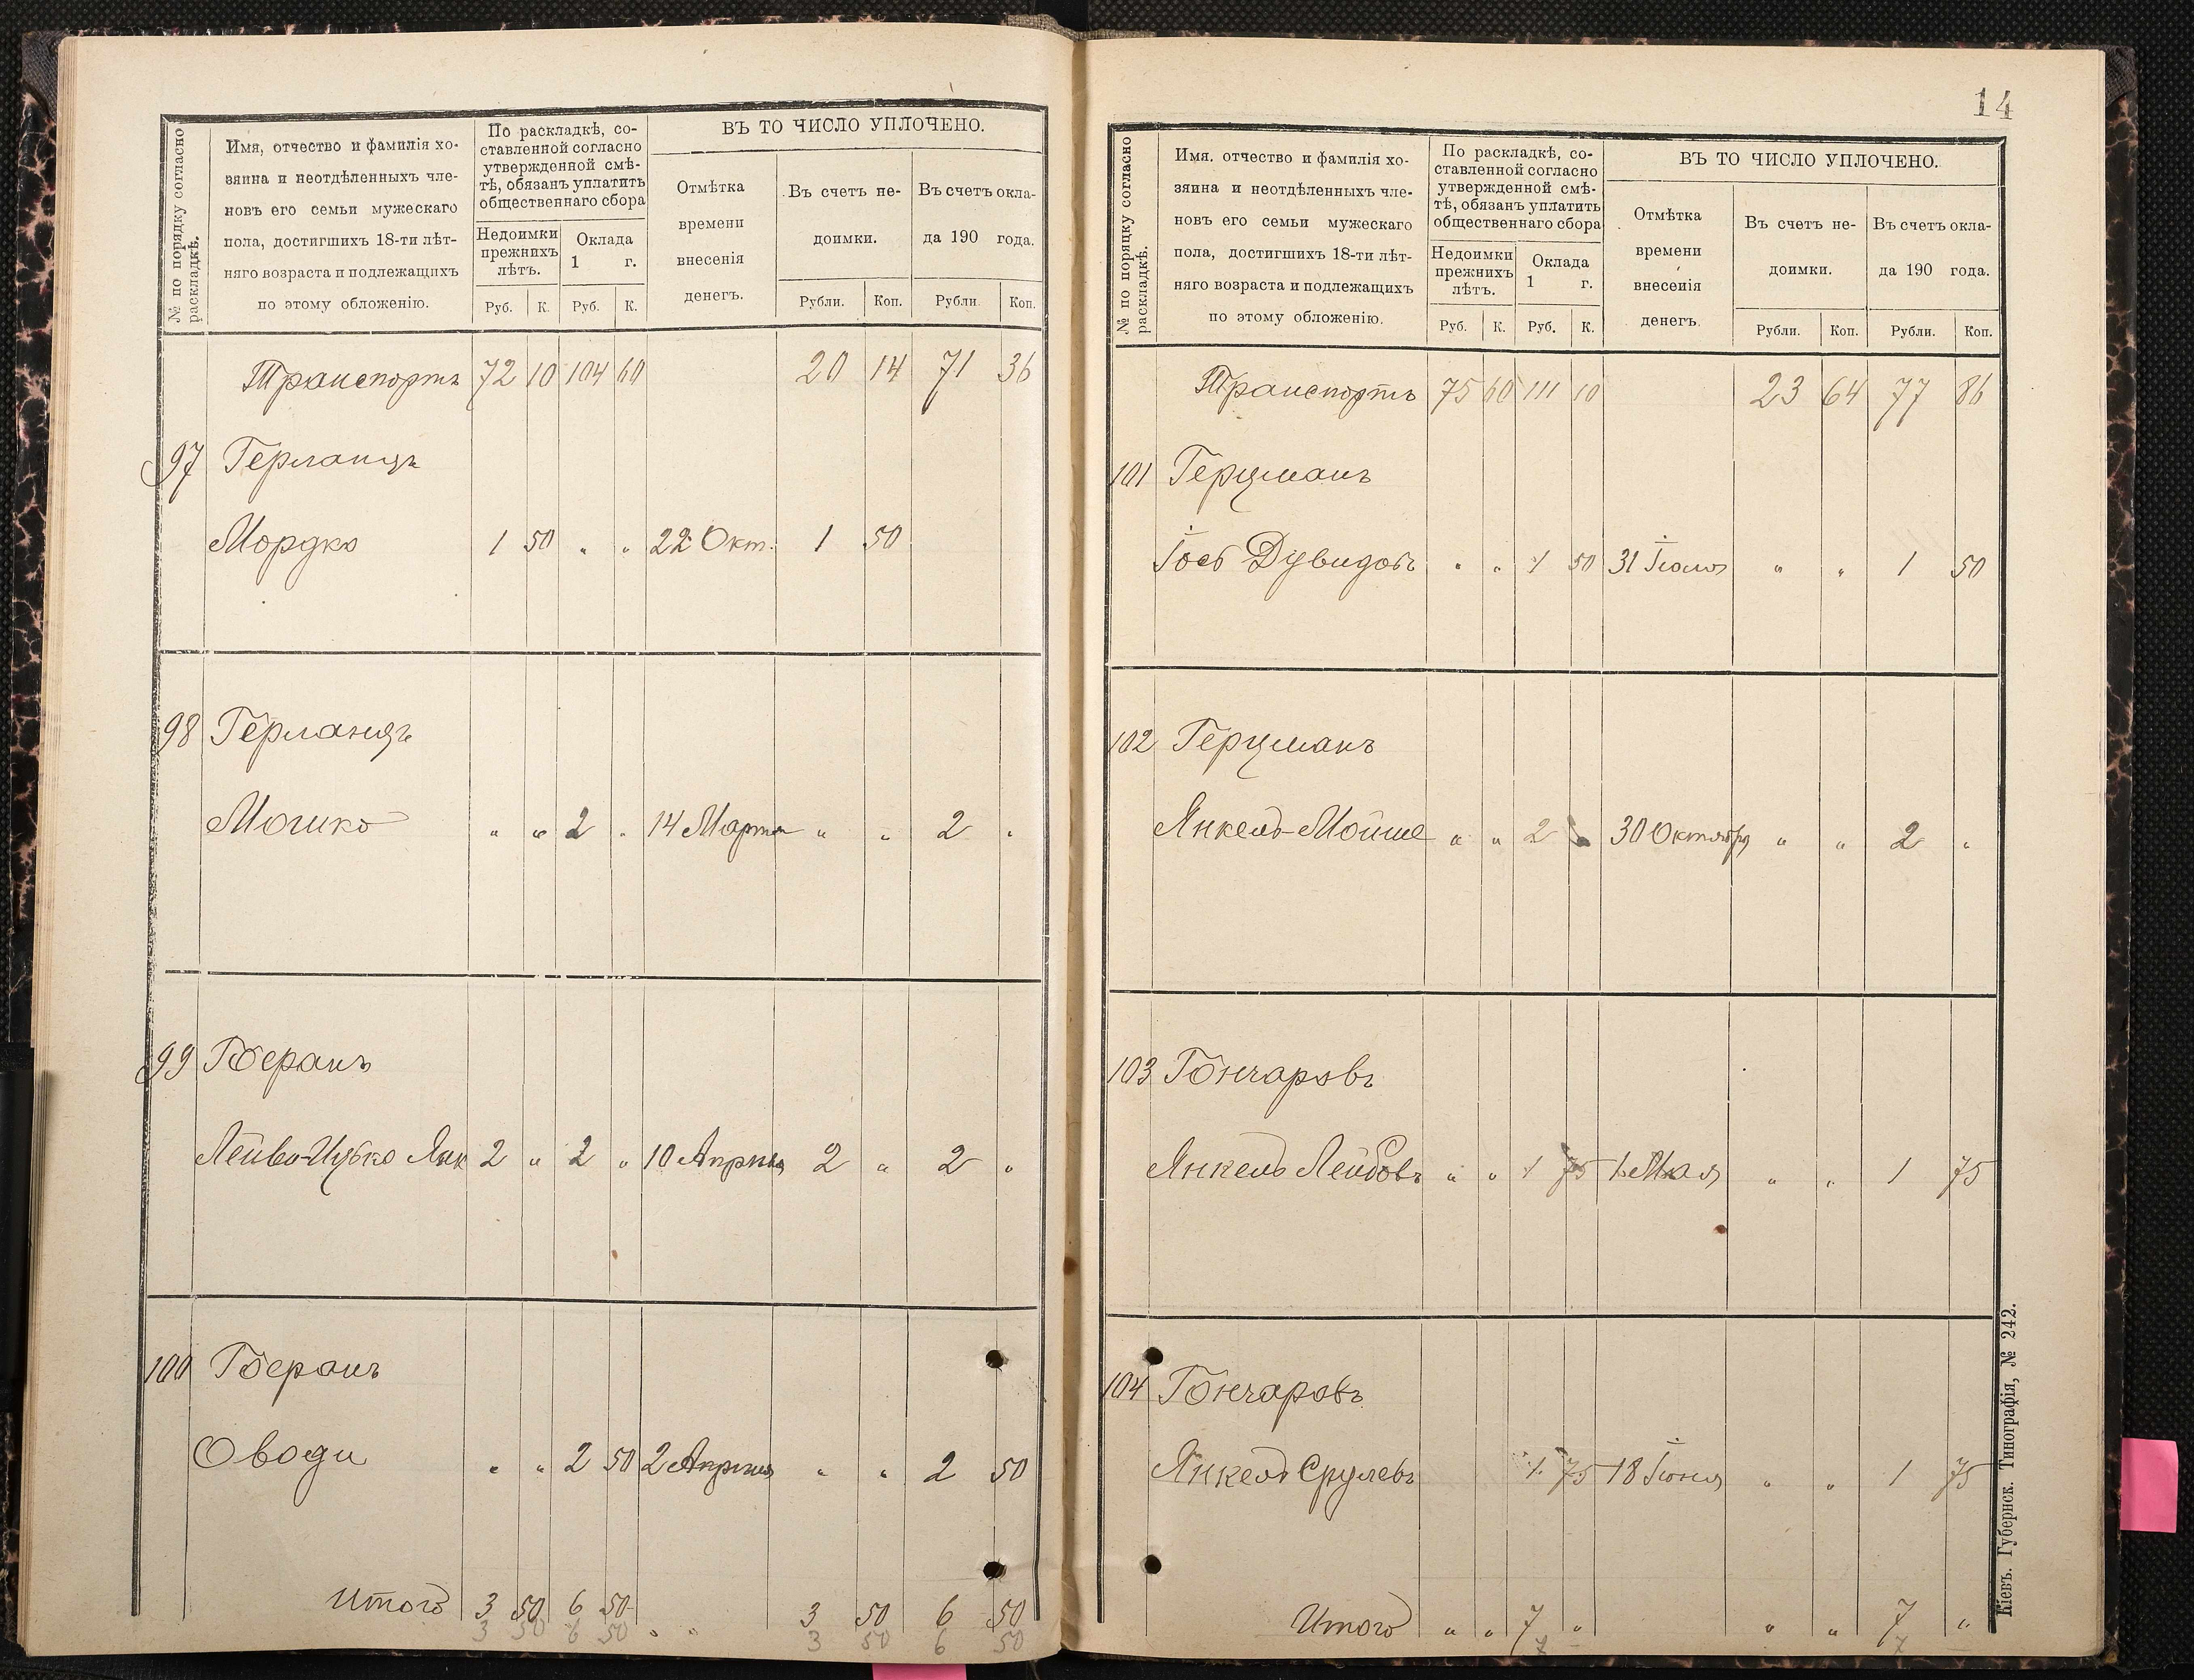 № по порядку согласно
раскладкѣ.
Имя, отчество и фамилія хо-
зяина и неотдѣленныхъ чле-
новъ его семьи мужескаго
пола, достигшихъ 18-ти лѣт-
няго возраста и подлежащихъ
по этому обложенію.
По раскладкѣ, со-
ставленной согласно
утвержденной смѣ-
тѣ, обязанъ уплатить
общественнаго сбора
Недоимки
прежнихъ
лѣтъ.
Оклада
1 г.
Руб. К. Руб. К.
ВЪ ТО ЧИСЛО УПЛОЧЕНО.
Отмѣтка
времени
внесенія
денегъ.
Въ счетъ не-
доимки.
Рубли. Коп.
Въ счетъ окла-
да 190 года.
Рубли. Коп.
Транспортъ 72 10 104 60 20 14 71 36
97 Германцъ
Мордко 1 50 " " 22 Окт. 1 50
98 Германцъ
Мошко " " 2 " 14 Марта " " 2 "
99
Янк 2 " 2 " 10 Апрѣля 2 " 2 "
100
" " 2 50 2 Апрѣля " " 2 50
Итого 3 50 6 50 " " 3 50 6 50
3 50 6 50 3 50 6 50
14
№ по порядку согласно
раскладкѣ.
Имя. отчество и фамилія хо-
зяина и неотдѣленныхъ чле-
новъ его семьи мужескаго
пола, достигшихъ 18-ти лѣт-
няго возраста и подлежащихъ
по этому обложенію.
По раскладкѣ, со-
ставленной согласно
утвержденной смѣ-
тѣ, обязанъ уплатить
общественнаго сбора
Недоимки
прежнихъ
лѣтъ.
Оклада
1 г.
Руб. К. Руб. К.
ВЪ ТО ЧИСЛО УПЛОЧЕНО.
Отмѣтка
времени
внесенія
денегъ.
Въ счетъ не-
доимки.
Рубли. Коп.
Въ счетъ окла-
да 190 года.
Рубли. Коп.
Транспортъ 75 60 111 10 23 64 77 86
101 Герцманъ
Іосъ Дувидовъ " " 1 50 31 Іюля " " 1 50
102 Герцманъ
Янкель-Мойше " " 2 " 30 Октября " " 2 "
103 Гончаровъ
Янкель Лейбовъ " " 1 75 1 Мая " " 1 75
104 Гончаровъ
Янкель Срулевъ 1 75 18 Іюня " " 1 75
Итого " " 7 " " " 7 "
7 7
Кіевъ. Губернск. Типографія, № 242.